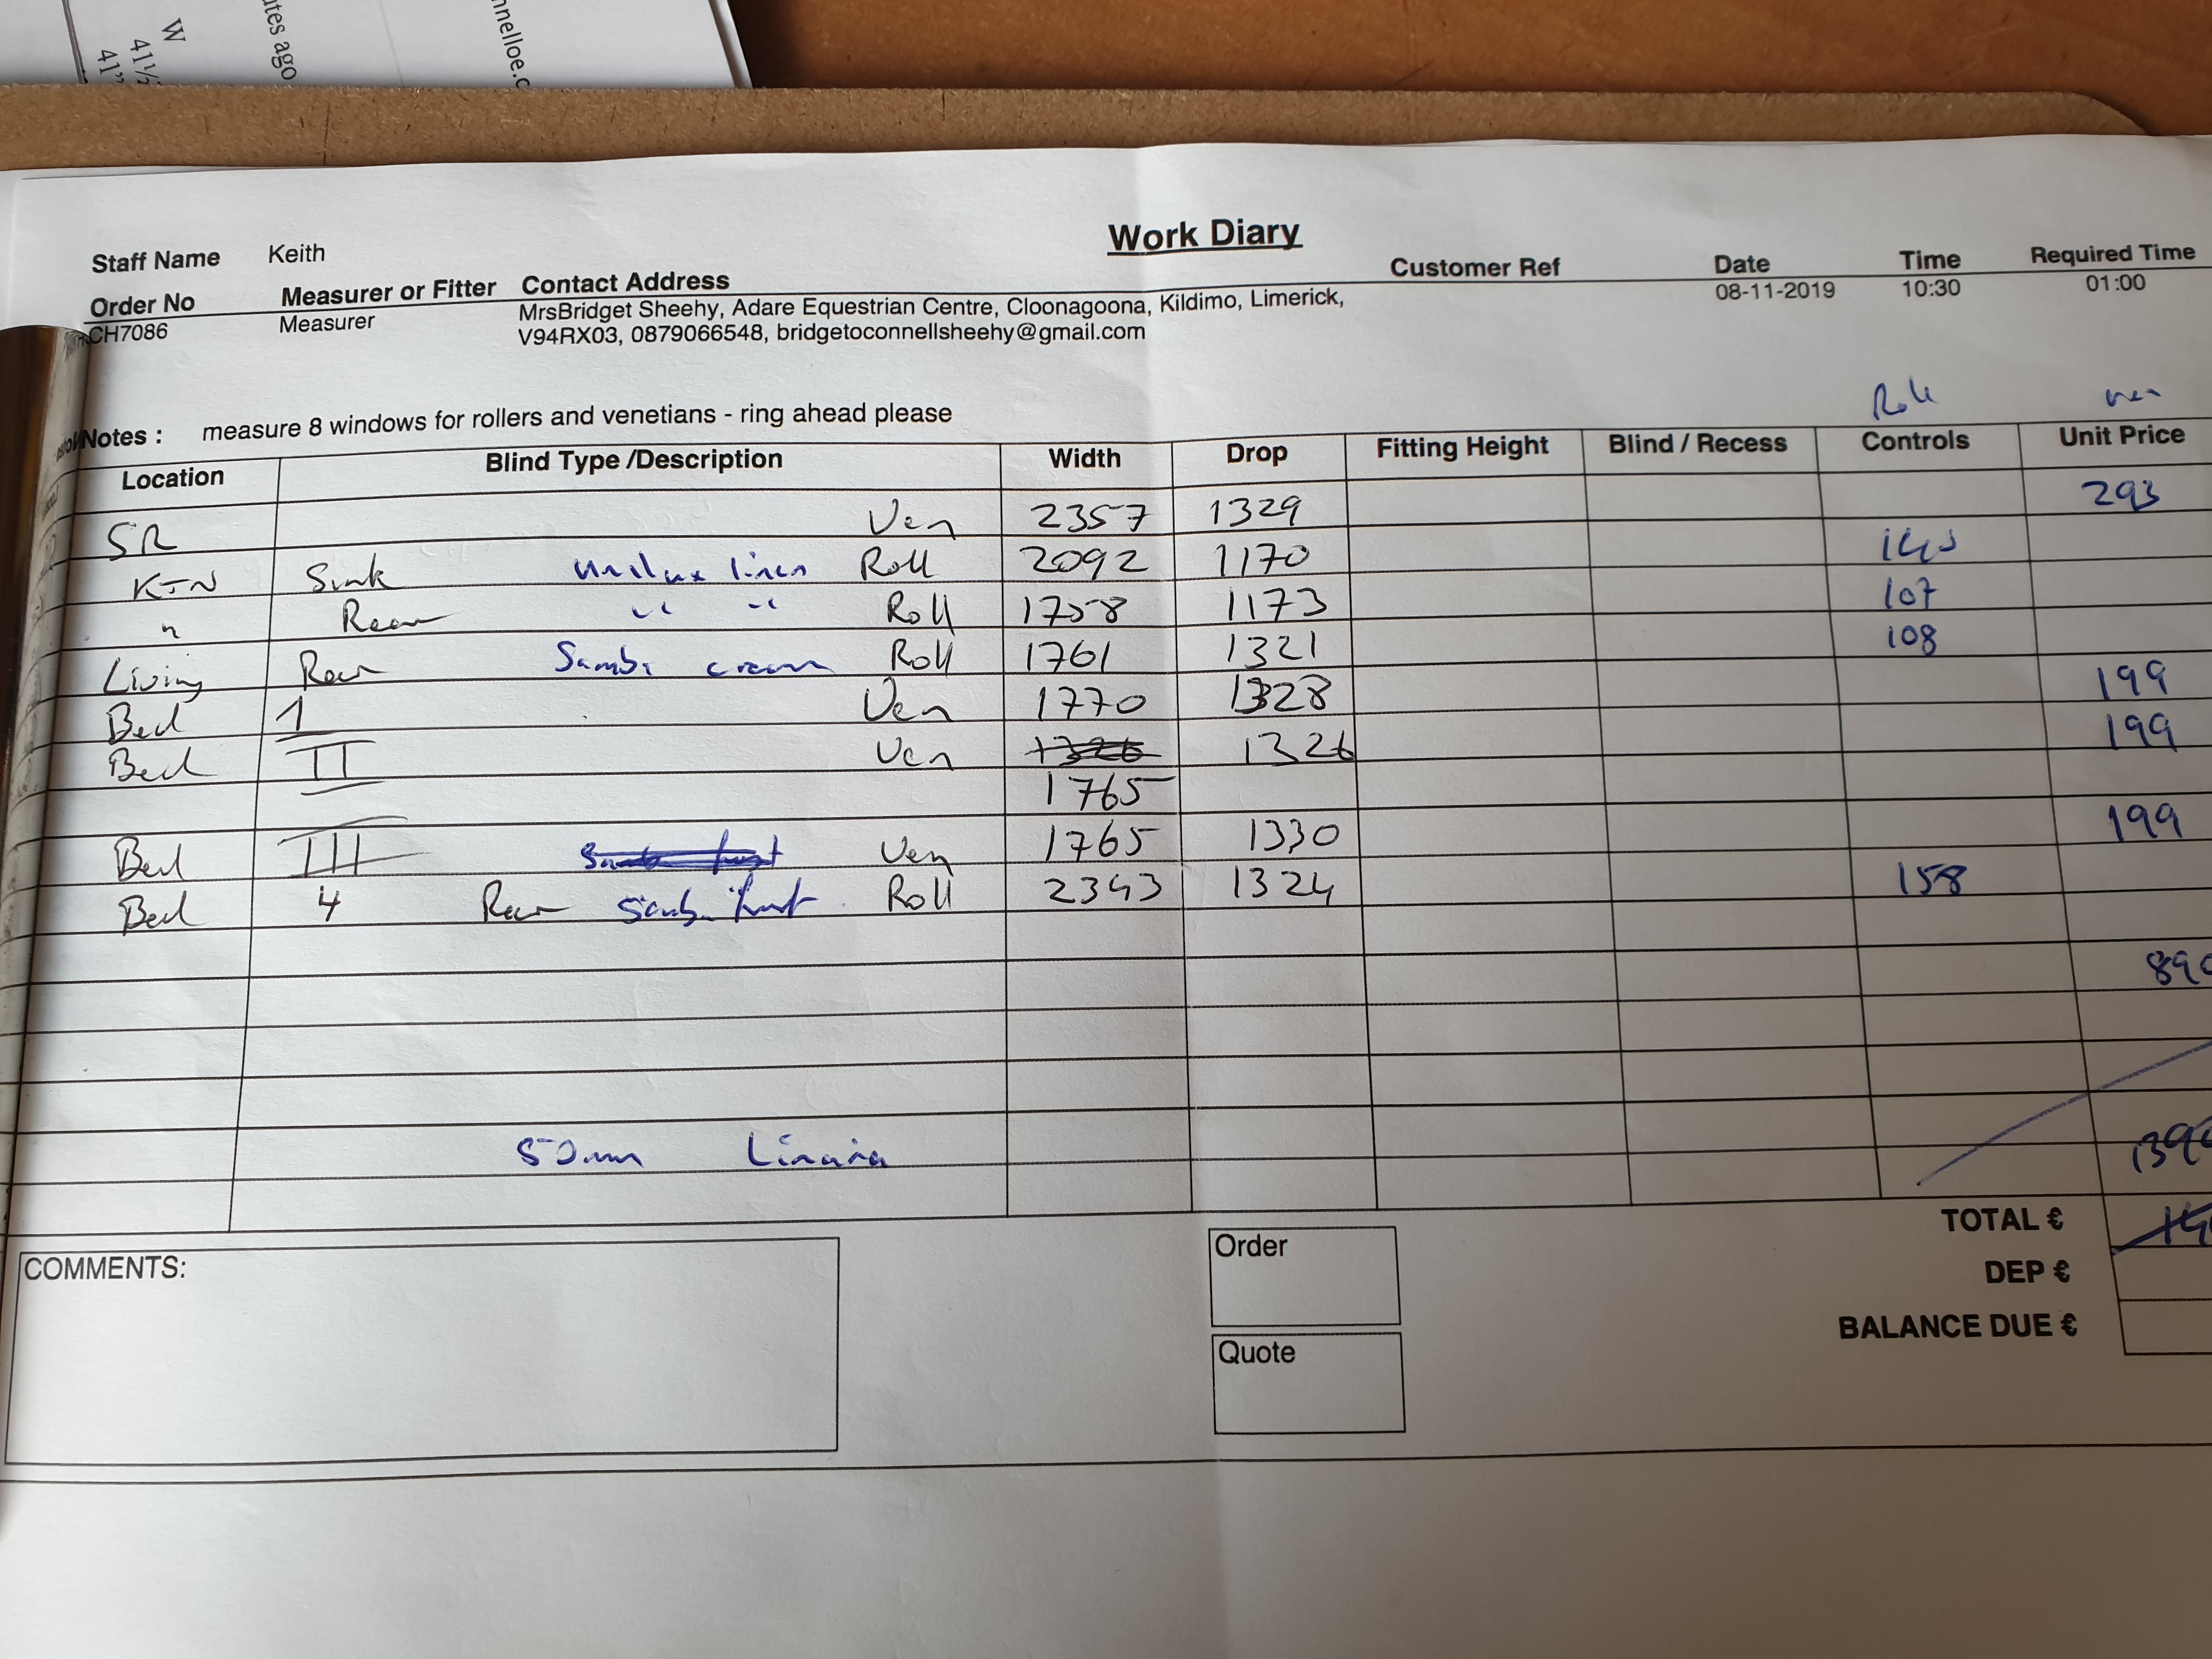 W
41½
41"
utes ago
nnelloe.c
Work Diary
Staff Name Keith
Customer Ref Date Time Required Time
Order No Measurer or Fitter Contact Address
08-11-2019 10:30 01:00
CH7086 Measurer MrsBridget Sheehy, Adare Equestrian Centre, Cloonagoona, Kildimo, Limerick,
V94RX03, 0879066548, bridgetoconnellsheehy@gmail.com
Notes : measure 8 windows for rollers and venetians - ring ahead please
Roll ven
Location Blind Type /Description Width Drop Fitting Height Blind / Recess Controls Unit Price
SR Ven 2357 1329 293
KTN Sink linen Roll 2092 1170
" Rear " " Roll 1758 1173 107
Living Rear Samba cream Roll 1761 1321 108
Bed 1 Ven 1770 1328 199
Bed II Ven 1326 1326 199
1765
Bed III Ven 1765 1330 199
Bed 4 Rear Roll 2343 1324 158
890
50mm
139
TOTAL €
DEP €
BALANCE DUE €
COMMENTS:
Order
Quote